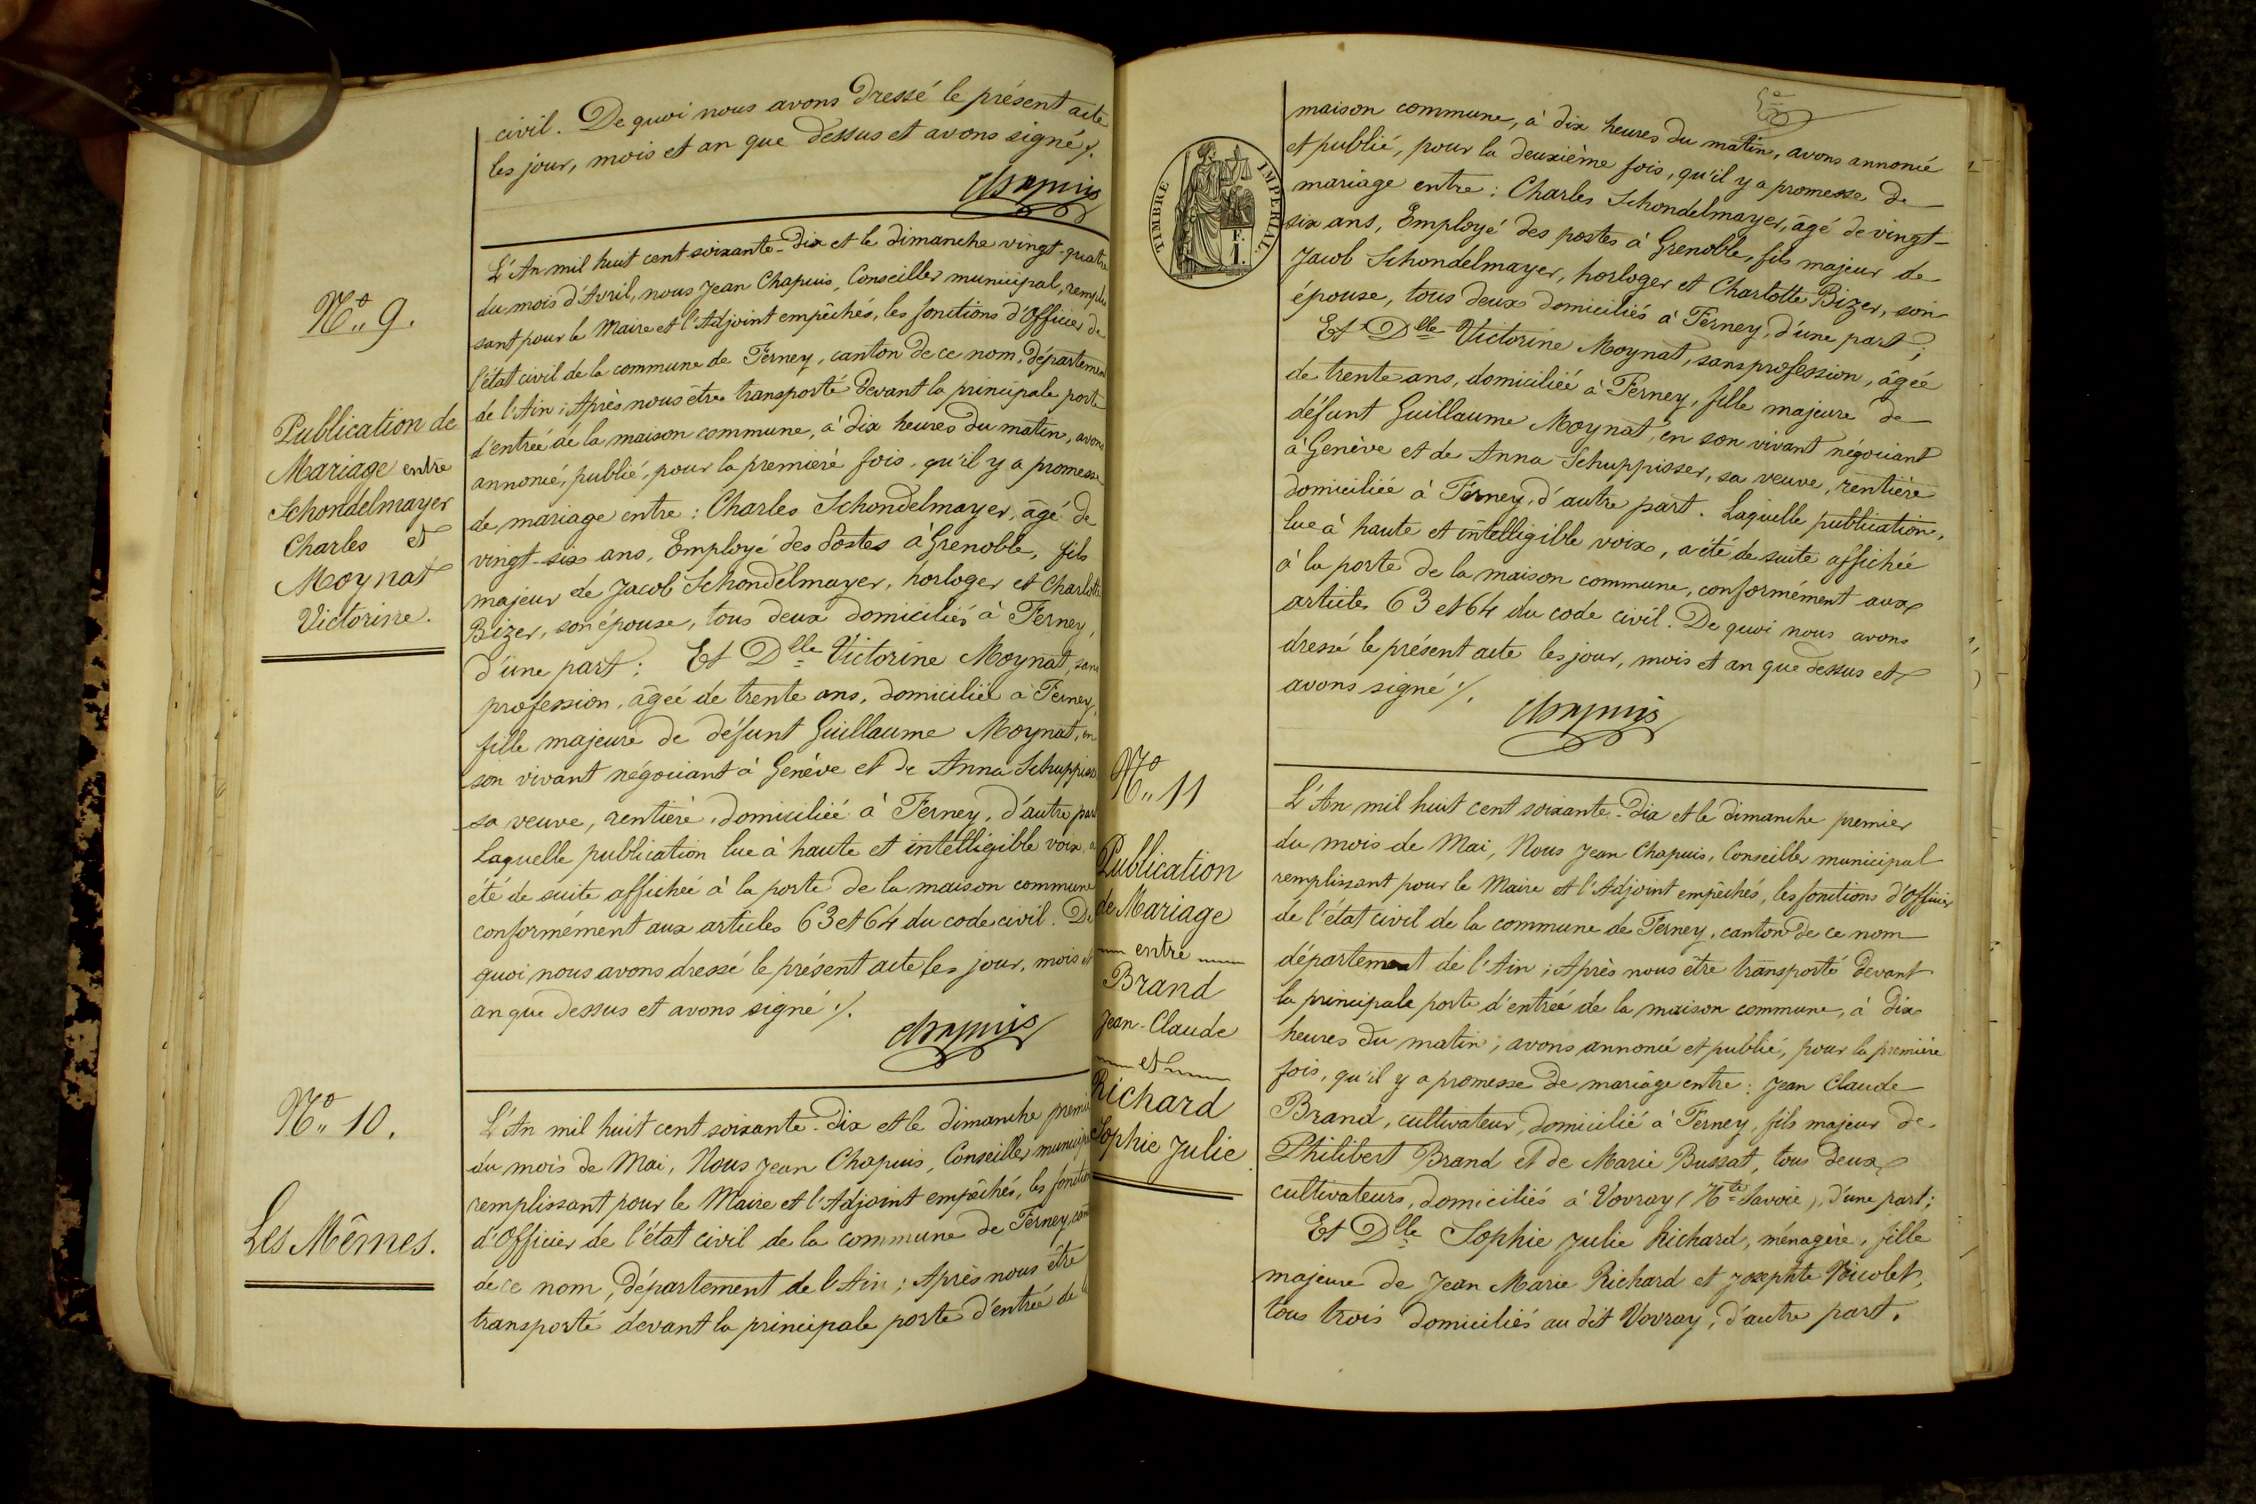 civil. De quoi nous avons dressé le présent acte
les jour, mois et an que dessus et avons signé ./.
Chapuis
N° 9.
Publication de
Mariage entre
Schondelmayer
Charles et
Moynat
Victorine.
L'An mil huit cent soixante-dix et le dimanche vingt-quatre
du mois d'Avril, nous Jean Chapuis, Conseiller municipal, remplis
sant pour le Maire et l'Adjoint empêchés, les fonctions d'Officier de
l'état civil de la commune de Ferney, canton de ce nom, département
de l'Ain; Après nous être transporté devant la principale porte
d'entrée de la maison commune, à dix heures du matin, avons
annoncé, publié, pour la première fois, qu'il y a promesse
de mariage entre : Charles Schondelmayer, âgé de
vingt-six ans, Employé des Postes à Grenoble, fils
majeur de Jacob Schondelmayer, horloger et Charlotte
Bizer, son épouse, tous deux domiciliés à Ferney,
d'une part; Et Dlle Victorine Moynat, sans
profession, âgée de trente ans, domiciliée à Ferney,
fille majeure de défunt Guillaume Moynat, en
son vivant négociant à Genève et de Anna Schuppisser
sa veuve, rentière, domiciliée à Ferney, d'autre part
Laquelle publication lue à haute et intelligible voix, a
été de suite affichée à la porte de la maison commune
conformément aux articles 63 et 64 du code civil. De
quoi nous avons dressé le présent acte les jour, mois et
an que dessus et avons signé ./.
Chapuis
N° 10.
Les Mêmes.
L'An mil huit cent soixante-dix et le dimanche premier
du mois de Mai, Nous Jean Chapuis, Conseiller municipal
remplissant pour le Maire et l'Adjoint empêchés, les fonctions
d'Officier de l'état civil de la commune de Ferney, canton
de ce nom, département de l'Ain; Après nous être
transporté devant la principale porte d'entrée de la
TIMBRE IMPERIAL
F.
1.
maison commune, à dix heures du matin, avons annoncé
et publié, pour la deuxième fois, qu'il y a promesse de
mariage entre : Charles Schondelmayer, âgé de vingt-
six ans, Employé des postes à Grenoble, fils majeur de
Jacob Schondelmayer, horloger et Charlotte Bizer, son
épouse, tous deux domiciliés à Ferney, d'une part;
Et Dlle Victorine Moynat, sans profession, âgée
de trente ans, domiciliée à Ferney, fille majeure de
défunt Guillaume Moynat, en son vivant négociant
à Genève et de Anna Schuppisser, sa veuve, rentière
domiciliée à Ferney, d'autre part. Laquelle publication,
lue à haute et intelligible voix, a été de suite affichée
à la porte de la maison commune, conformément aux
articles 63 et 64 du code civil. De quoi nous avons
dressé le présent acte les jour, mois et an que dessus et
avons signé ./.
Chapuis
N° 11
Publication
de Mariage
entre
Brand
Jean-Claude
et
Richard
Sophie Julie
L'An mil huit cent soixante-dix et le dimanche premier
du mois de Mai, Nous Jean Chapuis, Conseiller municipal
remplissant pour le Maire et l'Adjoint empêchés, les fonctions d'Officier
de l'état civil de la commune de Ferney, canton de ce nom
département de l'Ain; Après nous être transporté devant
la principale porte d'entrée de la maison commune, à dix
heures du matin; avons annoncé et publié, pour la première
fois, qu'il y a promesse de mariage entre : Jean Claude
Brand, cultivateur, domicilié à Ferney, fils majeur de
Philibert Brand et de Marie Bussat, tous deux
cultivateurs, domiciliés à Vovray (Hte Savoie), d'une part;
Et Dlle Sophie Julie Richard, ménagère, fille
majeure de Jean Marie Richard et Josephte Nicolet,
tous trois domiciliés au dit Vovray, d'autre part.